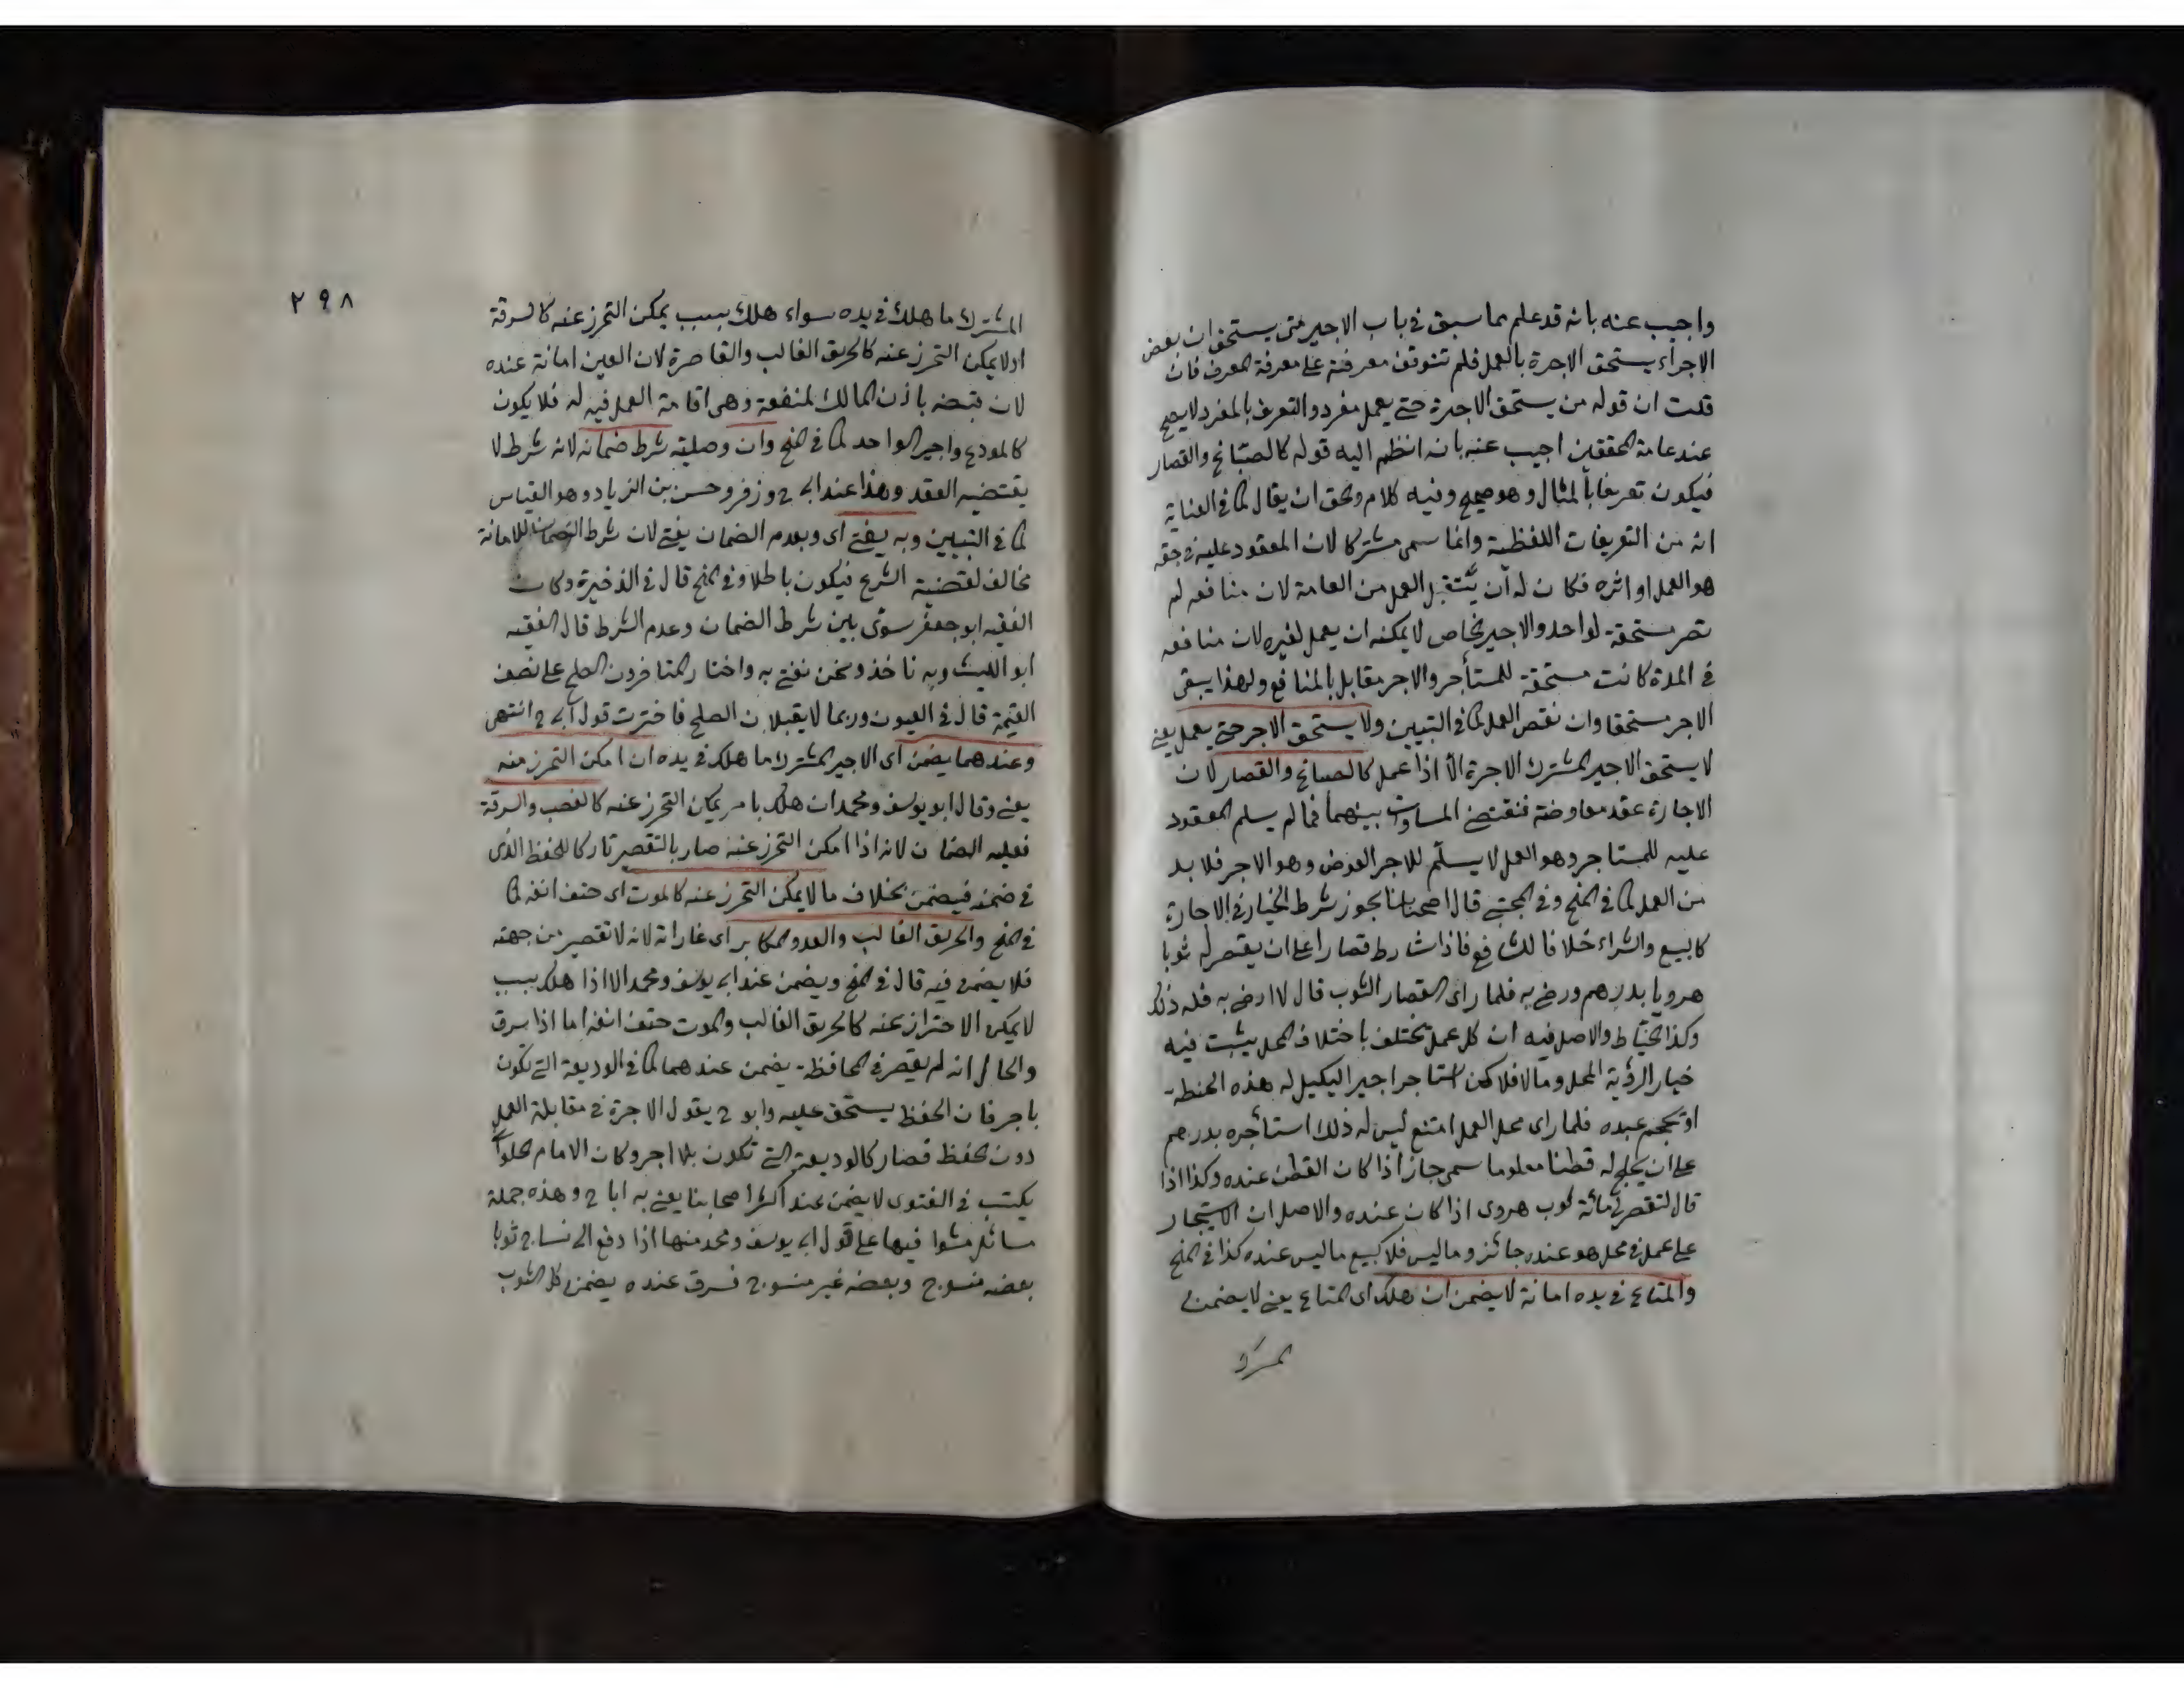 واجيب عنه بانه قد علم مما سبق في باب الاجير متى يستحق ان بعض
الاجراء يستحق الاجرة بالعمل فلم تتوقف معرفته على معرفة المعرف فان
قلت ان قوله من يستحق الاجرة حتى يعمل مفرد والتعريف بالمفرد لا يصح
عند عامة المحققين اجيب عنه بانه انظم اليه قوله كالصباغ والقصار
فيكون تعريفا بالمثال وهو صحيح وفيه كلام والحق ان يقال كما في العناية
انه من التعريفات اللفظية وانما سمى مشتركا لان المعقود عليه في حقه
هو العمل او اثره فكان له ان يتقبل العمل من العامة لان منافعه لم
تصر مستحقة لواحد والاجير الخاص لا يمكنه ان يعمل لغيره لان منافعه
في المدة كانت مستحقة للمستأجر والاجر مقابل بالمنافع ولهذا يبقى
الاجر مستحقا وان نقص العمل كما في التبيين ولا يستحق الاجر حتى يعمل يعني
لا يستحق الاجير المشترك الاجرة الا اذا عمل كالصباغ والقصار لان
الاجارة عقد معاوضة فتقتضي المساواة بينهما فما لم يسلم المعقود
عليه للمستاجر وهو العمل لا يسلّم للاجر العوض وهو الاجر فلا بد
من العمل كما في المنح وفي المجتبى قال اصحابنا يجوز شرط الخيار في الاجارة
كالبيع والشراء خلافا للشافع فاذا شارط قصارا على ان يقصر له ثوبا
هرويا بدرهم ورضي به فلما راى القصار الثوب قال لا ارضى به فله ذلك
وكذا الخيّاط والاصل فيه ان كل عمل يختلف باختلاف المحل يثبت فيه
خيار الرؤية المحل وما لا فلا كمن استاجر اجيرا ليكيل له هذه الحنطة
او يحجم عبده فلما راى محل العمل امتنع ليس له ذلك استأجره بدرهم
على ان يحلج له قطنا معلوما سمى جاز اذا كان القطن عنده وكذا اذا
قال لتقصر لي مائة ثوب هروى اذا كان عنده والاصل ان الاستيجار
على عمل في محل هو عنده جائز وما ليس فلا كبيع ما ليس عنده كذا في المنح
والمتاع في يده امانة لا يضمن ان هلك اى المتاع يعني لا يضمن
المشترك
٢٩٨
المشترك ما هلك في يده سواء هلك بسبب يمكن التحرز عنه كالسرقة
او لا يمكن التحرز عنه كالحريق الغالب والقاصرة لان العين امانة عنده
لان قبضه باذن المالك لمنفعة وهى اقامة العمل فيه له فلا يكون
كالمودع واجير الواحد كما في المنح وان وصلية شرط ضمانه لانه شرط لا
يقتضيه العقد وهذا عند ابى ح وزفر وحسن بن الزياد وهو القياس
كما في التبيين وبه يفتى اى وبعدم الضمان يفتى لان شرط الضمان للامانة
مخالف لقضية الشرع فيكون باطلا وفي المنح قال في الذخيرة وكان
الفقيه ابو جعفر سوّى بين شرط الضمان وعدم الشرط قال الفقيه
ابو الليث وبه ناخذ ونحن نفتى به واختار المتاخرون الصلح على نصف
القيمة قال في العيون وربما لا يقبلان الصلح فاخترت قول ابى ح انتهى
وعندهما يضمن اى الاجير المشترك ما هلك في يده ان امكن التحرز منه
يعني وقال ابو يوسف ومحمد ان هلك بامر يمكن التحرز عنه كالغصب والسرقة
فعليه الضمان لانه اذا امكن التحرز عنه صار بالتقصير تاركا للحفظ الذى
في ضمنه فيضمن بخلاف ما لا يمكن التحرز عنه كالموت اى حتف انفه كما
في المنح والحريق الغالب والعدو المكابر اى غارات لانه لا تقصير من جهته
فلا يضمن فيه قال في المنح ويضمن عند ابى يوسف ومحمد الا اذا هلك بسبب
لا يمكن الاحتراز عنه كالحريق الغالب والموت حتف انفه اما اذا سرق
والحال انه لم يقصر في المحافظة يضمن عندهما كما في الوديعة التي تكون
باجر فان الحفظ يستحق عليه وابو ح يقول الاجرة في مقابلة العمل
دون الحفظ فصار كالوديعة التي تكون بلا اجر وكان الامام الحلوانى
يكتب في الفتوى لا يضمن عند اكثر اصحابنا يعني به ابا ح وهذه جملة
مسائل مشوا فيها على قول ابى يوسف ومحمد منها اذا دفع الى نساج ثوبا
بعضه منسوج وبعضه غير منسوج فسرق عنده يضمن كل الثوب